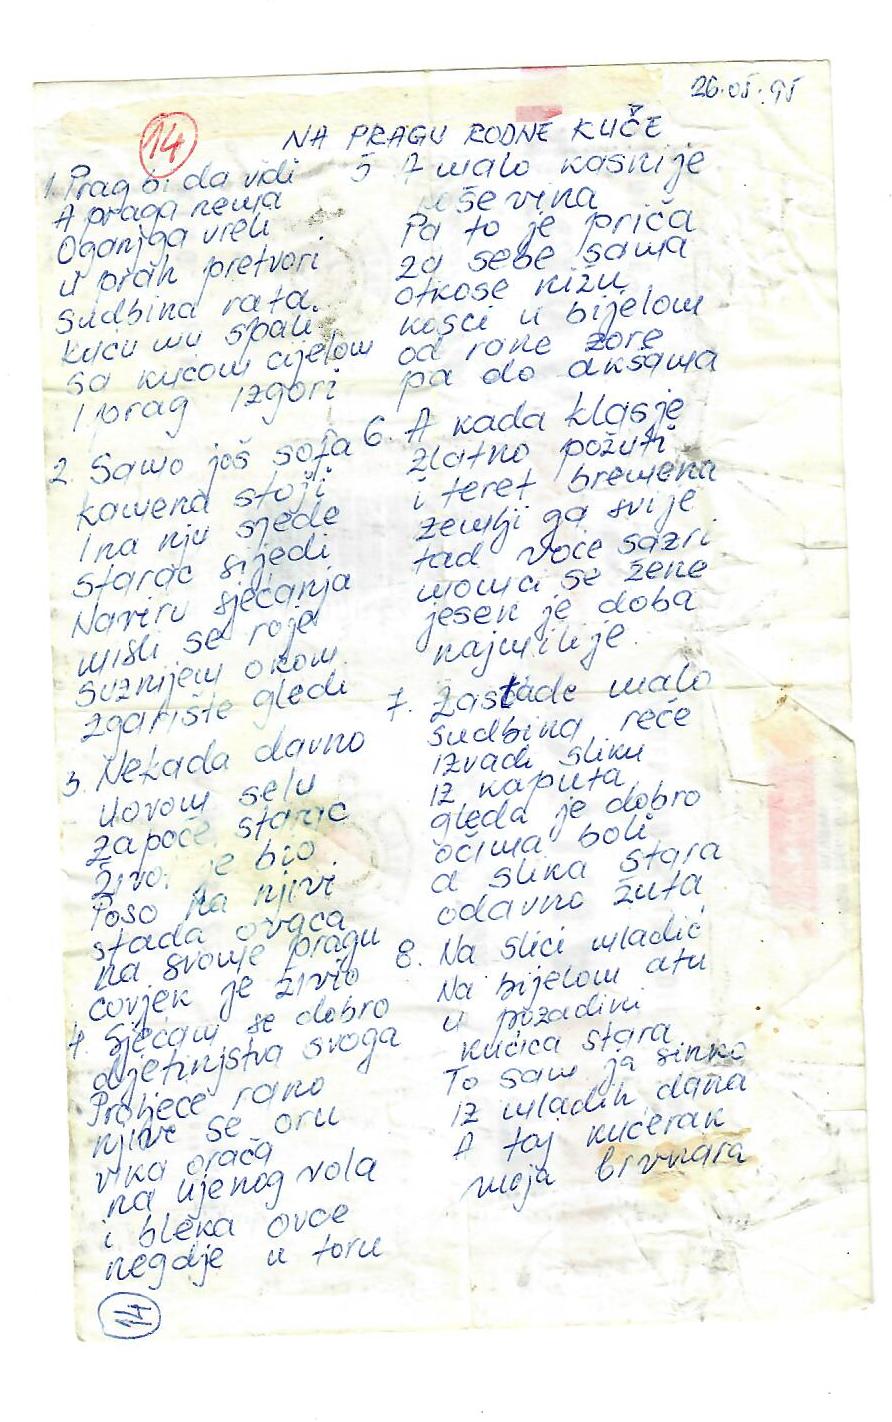 26.05.95
14
NA PRAGU RODNE KUČE
1. Prag bi da vidi
A praga nema
Oganj ga vreli
u prah pretvori
sudbina rata
kuću mu spali
sa kućom cijelom
I prag izgori
2. Samo još sofa
kamena stoji
I na nju sjede
starac sijedi
Naviru sjećanja
misli se roje
suznijem okom
zgarište gledi
3. Nekada davno
u ovom selu
započe starac
život je bio
Poso na njivi
stada ovaca
na svome pragu
čovjek je živio
4. Sjećam se dobro
djetinjstva svoga
Proljeće rano
njive se oru
vika orača
na ujenog vola
i bleka ovce
negdje u toru
5 A malo kasnije
koševina
Pa to je priča
za sebe sama
otkose nižu
kosci u bijelom
od rane zore
pa do akšama
6. A kada klasje
zlatno požuti
i teret bremena
zemlji ga svije
tad voće sazri
momci se žene
jesen je doba
najmilije
7. Zastade malo
sudbina reče
izvadi sliku
iz kaputa
gleda je dobro
očima boli
a slika stara
odavno žuta
8. Na slici mladić
Na bijelom atu
u pozadini
kućica stara
To sam ja sinko
iz mladih dana
A taj kućerak
moja brvnara
14